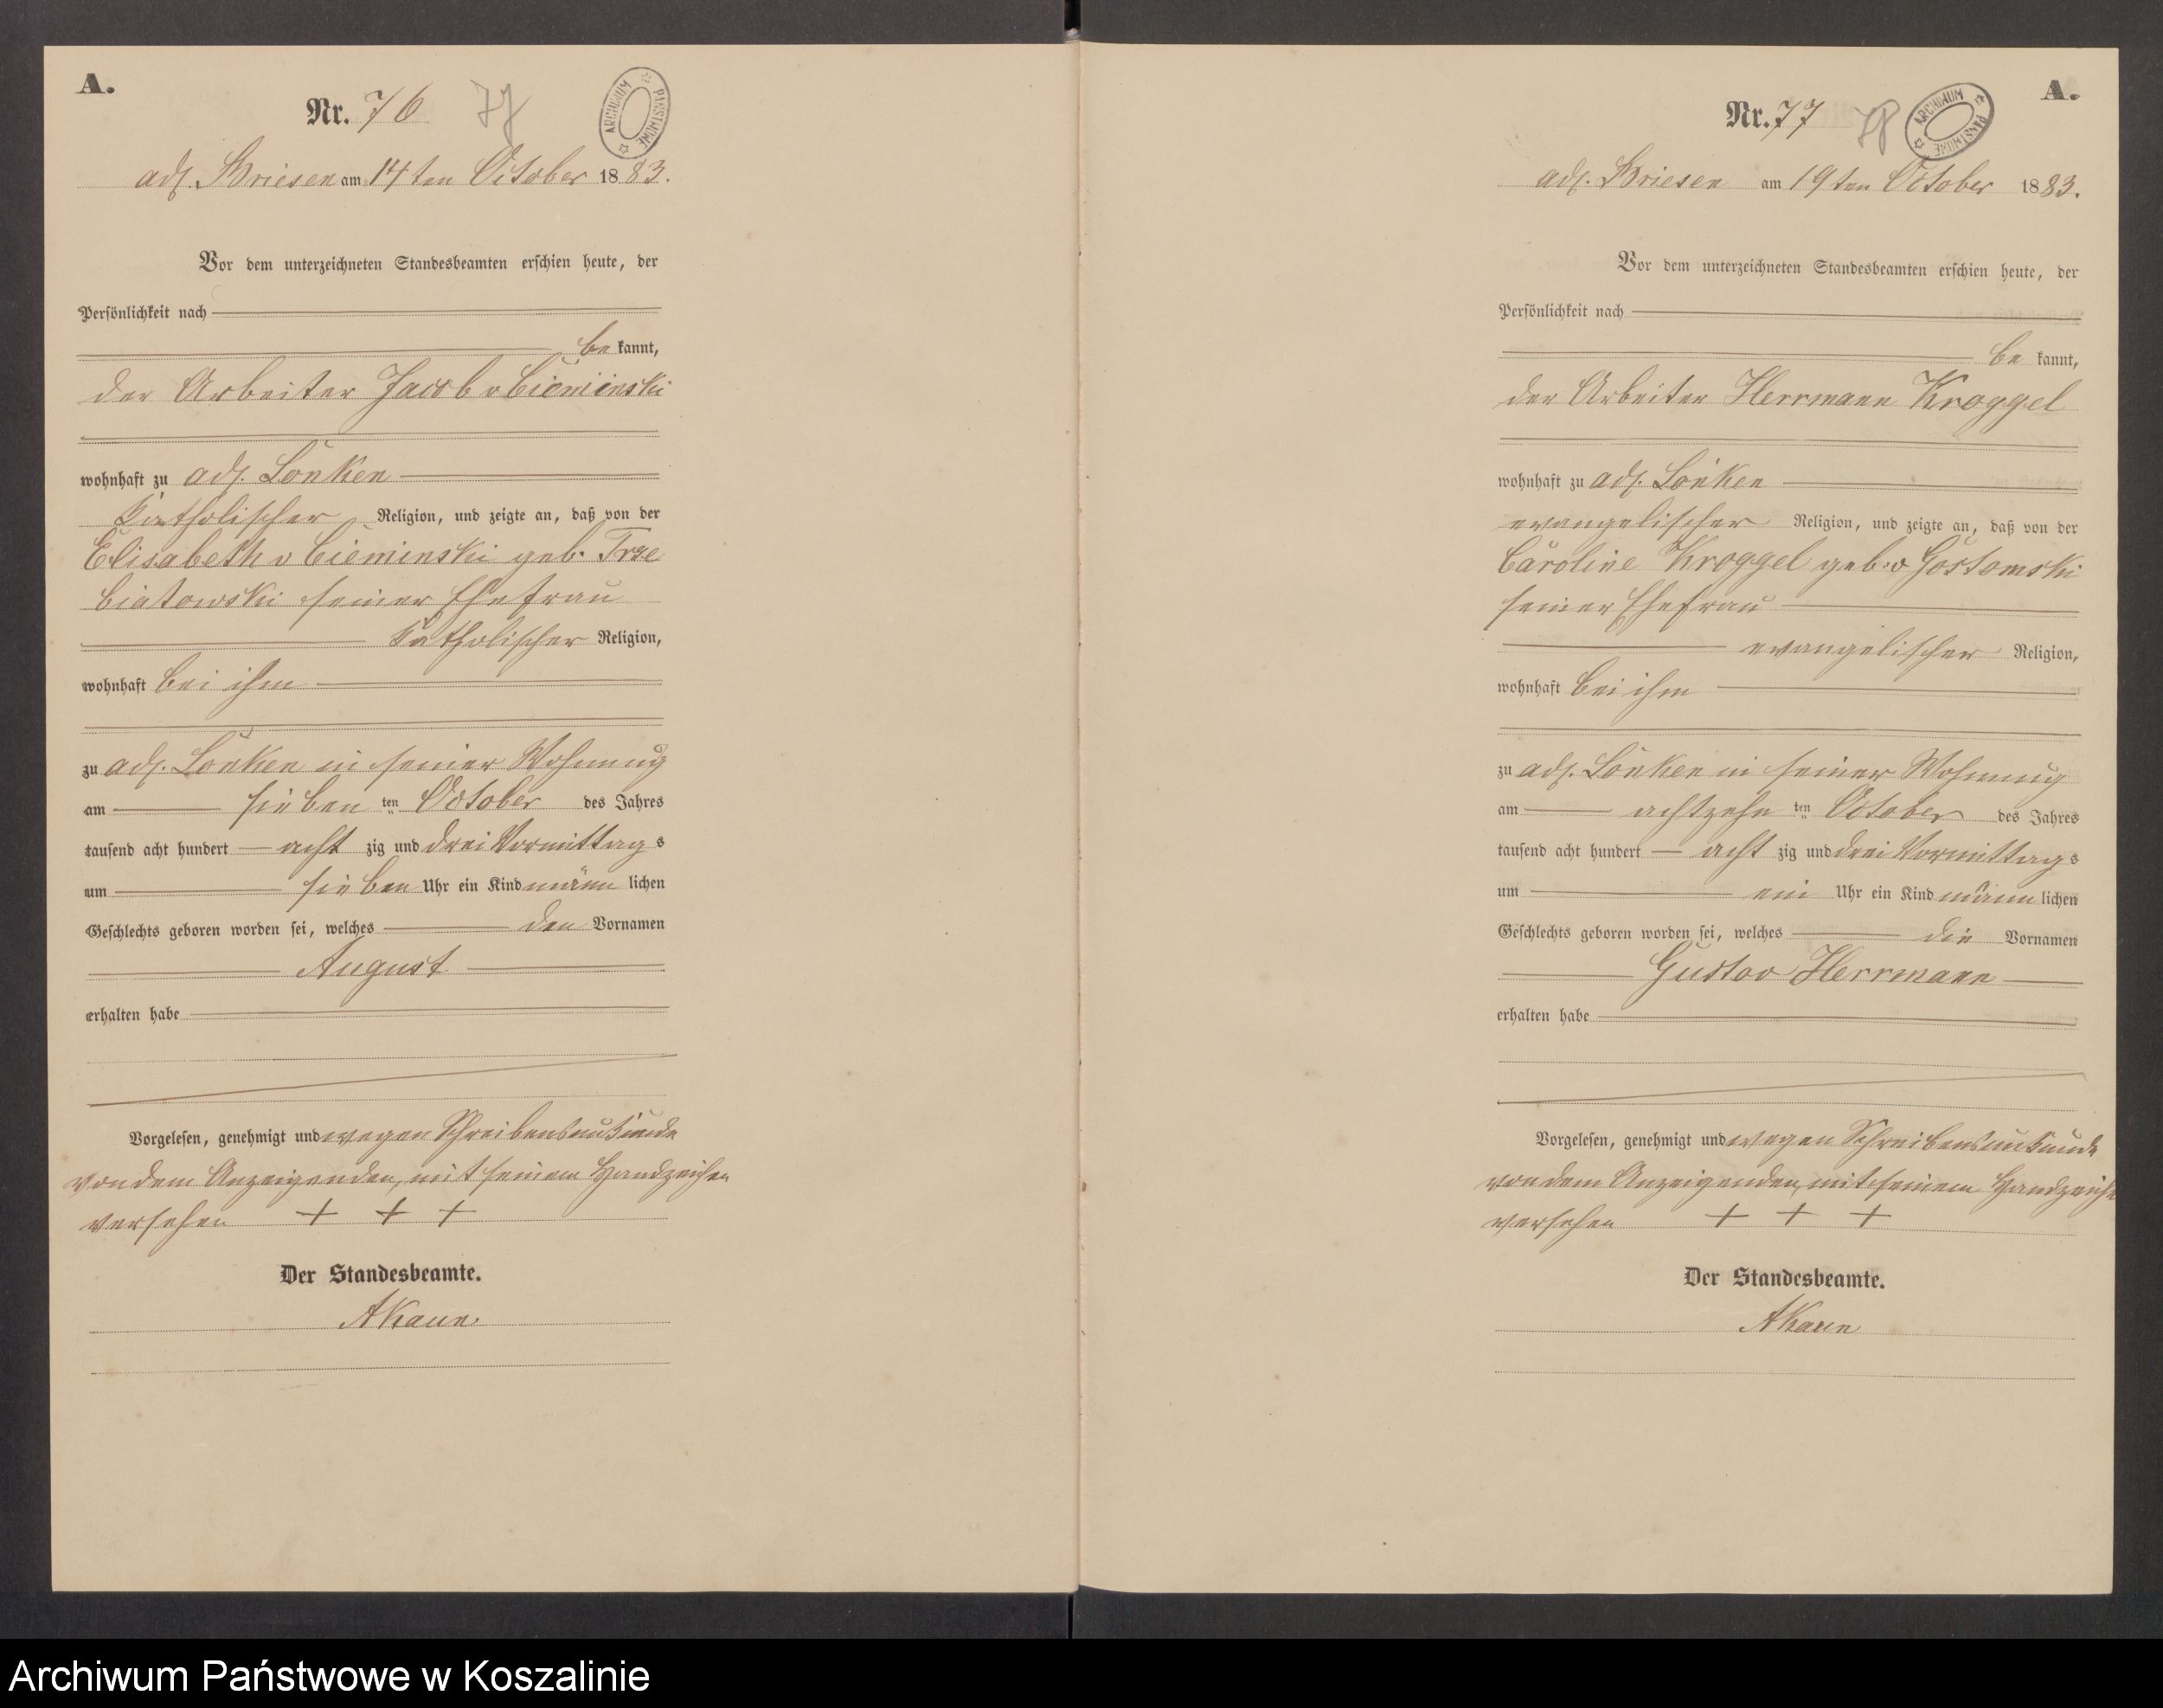 A.
Nr. 76 77
ARCHIWUM PAŃSTWOWE
adl. Briesen am 14ten October 1883.
Vor dem unterzeichneten Standesbeamten erschien heute, der
Persönlichkeit nach
be kannt,
der Arbeiter Jacob v Cieminski
wohnhaft zu adl. Lonken
katholischer Religion, und zeigte an, daß von der
Elisabeth v Cieminski geb. Trze
biatowski seiner Ehefrau
katholischer Religion,
wohnhaft bei ihm
zu adl. Lonken in seiner Wohnung
am sieben ten October des Jahres
tausend acht hundert acht zig und drei Vormittag s
um sieben Uhr ein Kind männ lichen
Geschlechts geboren worden sei, welches den Vornamen
August
erhalten habe
Vorgelesen, genehmigt und wegen Schreibensunkunde
von dem Anzeigenden, mit seinem Handzeichen
versehen + + +
Der Standesbeamte.
A Kaun.
A.
Nr. 77 78
ARCHIWUM PAŃSTWOWE
adl. Briesen am 19ten October 1883.
Vor dem unterzeichneten Standesbeamten erschien heute, der
Persönlichkeit nach
be kannt,
der Arbeiter Herrmann Kroggel
wohnhaft zu adl. Lonken
evangelischer Religion, und zeigte an, daß von der
Caroline Kroggel geb. v Gostomski
seiner Ehefrau
evangelischer Religion,
wohnhaft bei ihm
zu adl. Lonken in seiner Wohnung
am achtzehn ten October des Jahres
tausend acht hundert acht zig und drei Vormittag s
um ein Uhr ein Kind männ lichen
Geschlechts geboren worden sei, welches die Vornamen
Gustav Herrmann
erhalten habe
Vorgelesen, genehmigt und wegen Schreibensunkunde
von dem Anzeigenden, mit seinem Handzeichen
versehen + + +
Der Standesbeamte.
A Kaun
Archiwum Państwowe w Koszalinie